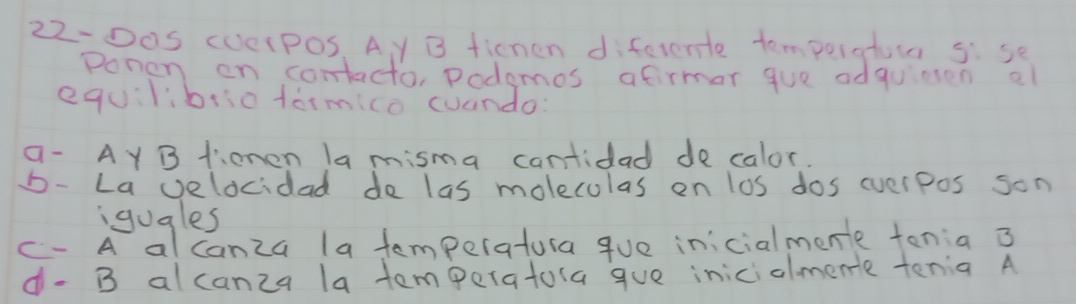 22- Dos cuerpos A y B tienen diferente temperatura si se
Ponen en contacto, Podemos afirmar que adquieren el
equilibrio térmico cuando:
a- A y B tienen la misma cantidad de calor.
b- La velocidad de las moleculas en los dos cuerpos son
iguales
c- A alcanza la temperatura que inicialmente tenia B
d- B alcanza la temperatura que inicialmente tenia A